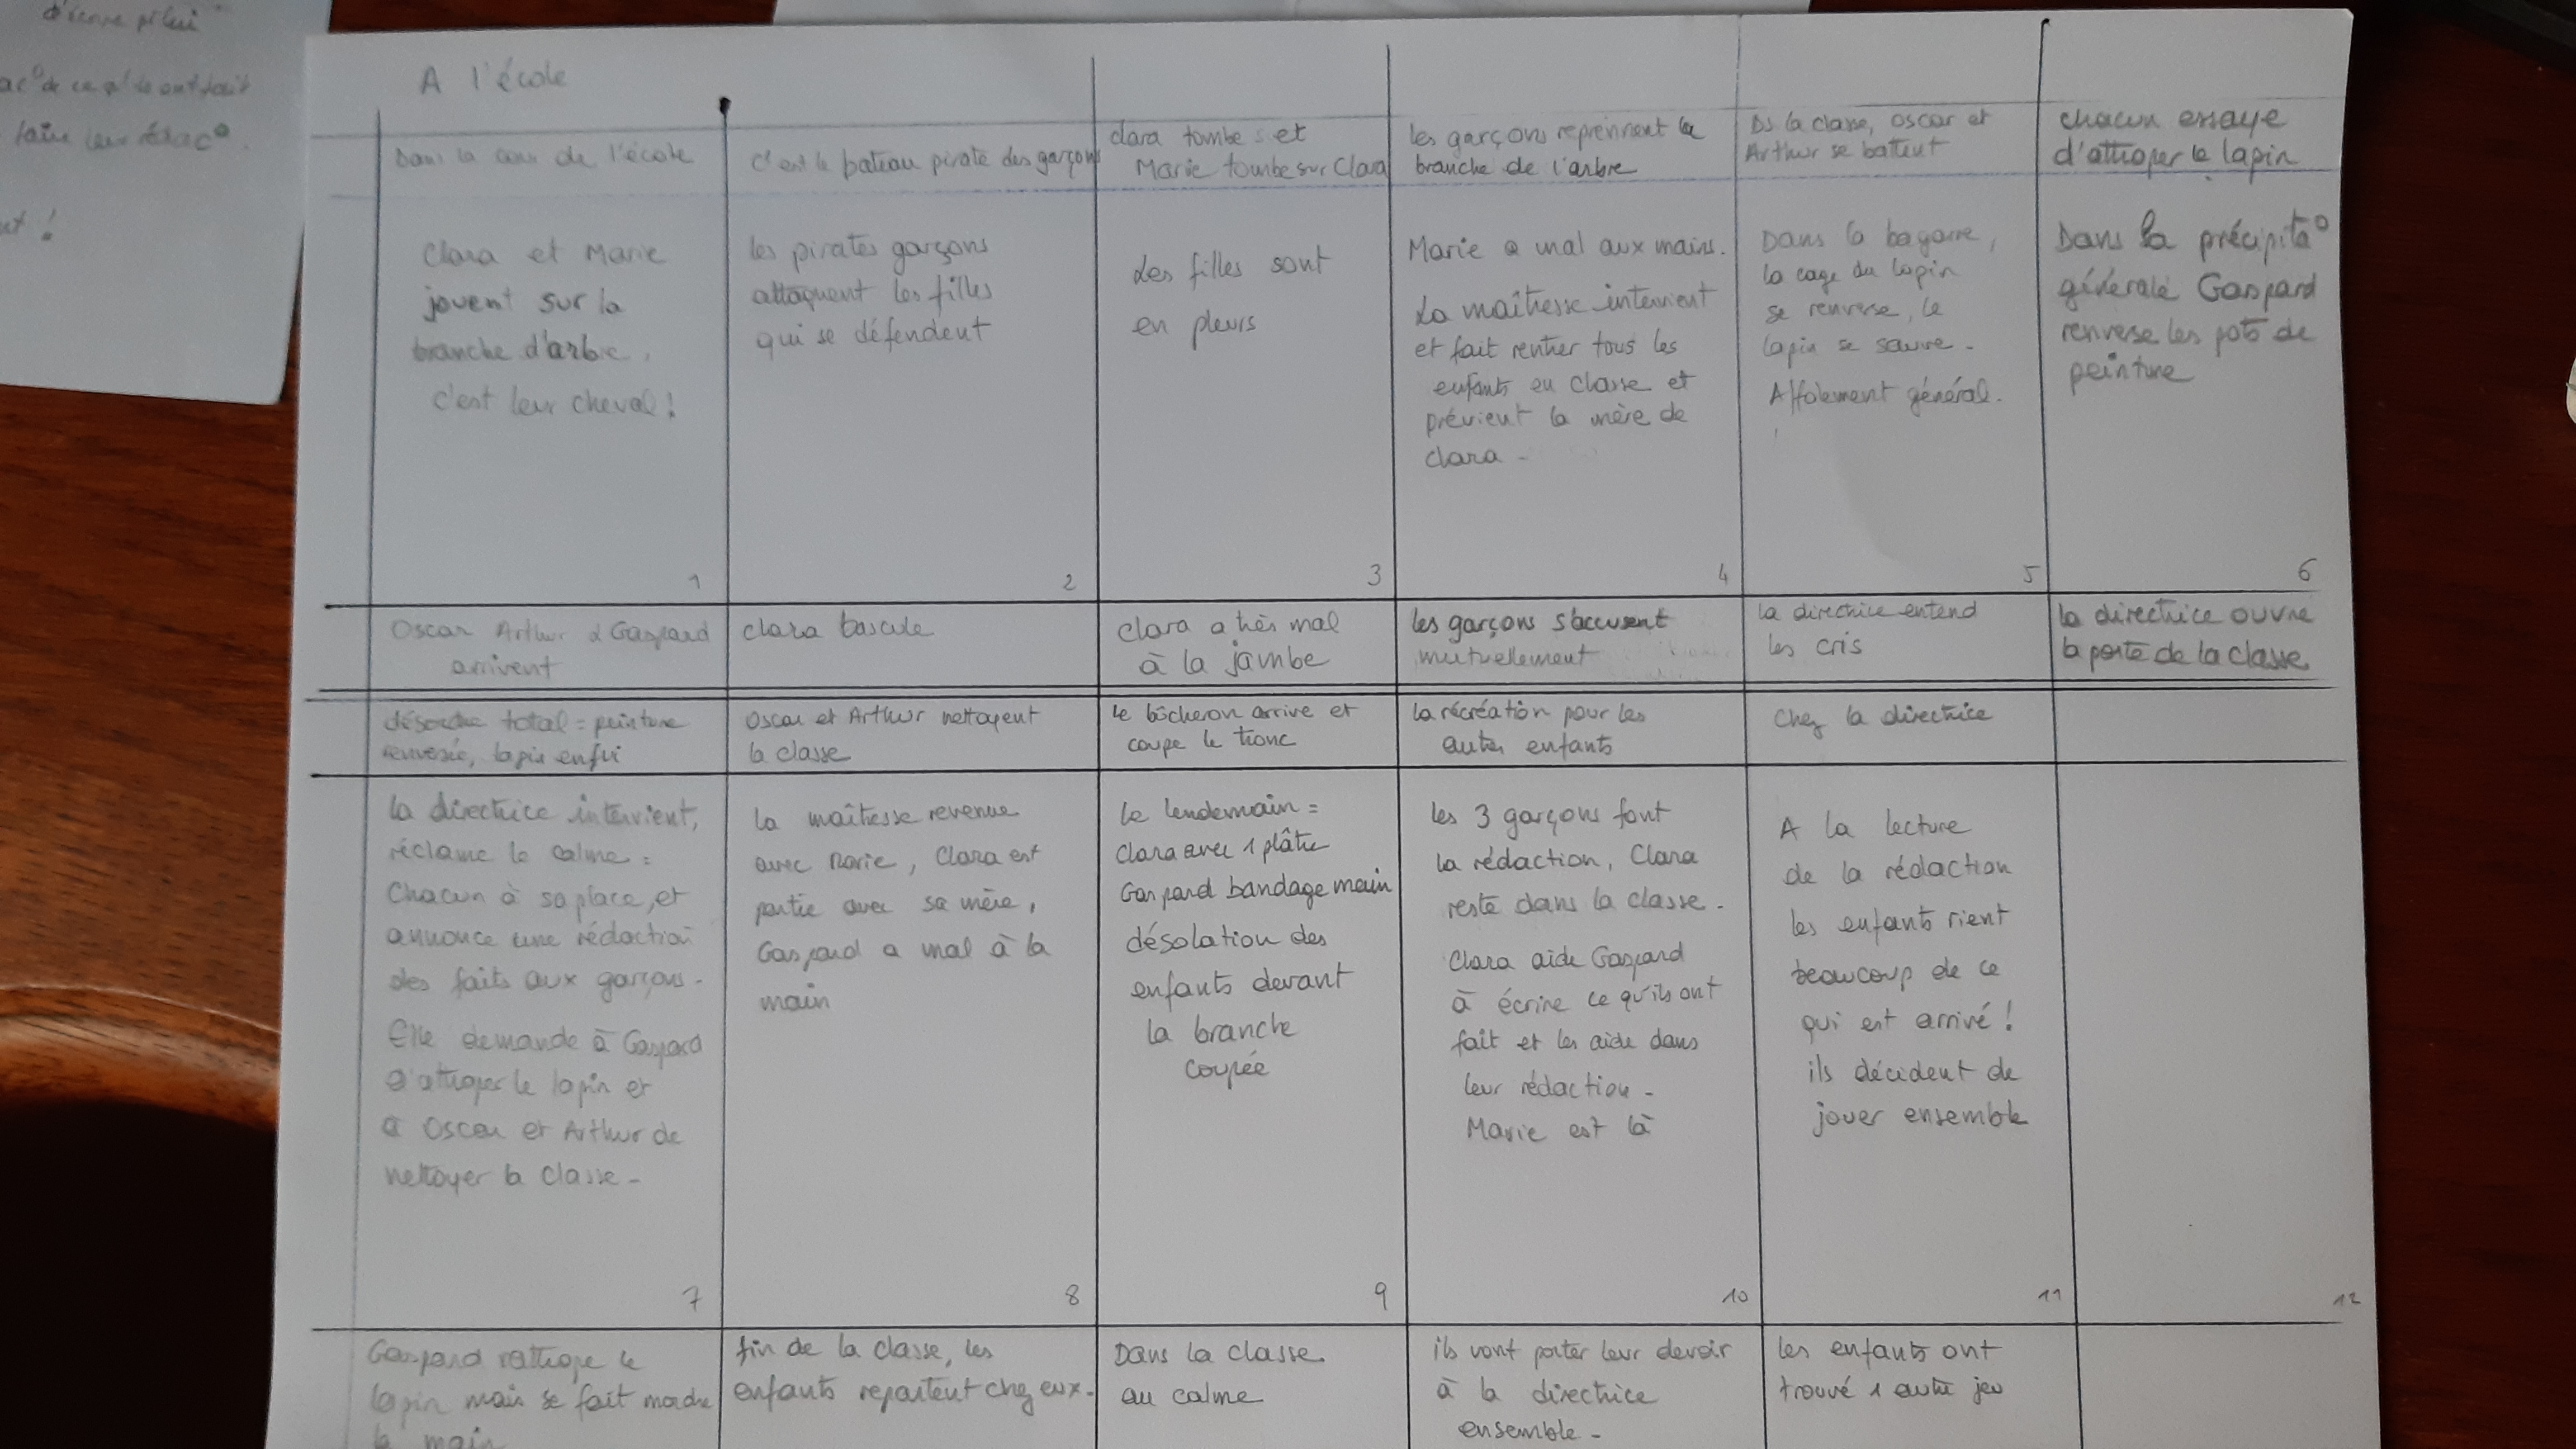 d'écrire
de ce qu' ils ont fait
faire leur rédac°.
!
A l'école
Dans la cour de l'école
Clara et Marie
jouent sur la
branche d'arbre.
c'est leur cheval !
1
Oscar Arthur & Gaspard
arrivent
c'est le bateau pirate des garçons
les pirates garçons
attaquent les filles
qui se défendent
2
Clara bascule
clara tombe et
Marie tombe sur Clara
Les filles sont
en pleurs
3
Clara a très mal
à la jambe
les garçons reprennent la
branche de l'arbre
Marie a mal aux mains.
La maîtresse intervient
et fait rentrer tous les
enfants en classe et
prévient la mère de
Clara -
4
les garçons s'accusent
mutuellement
Ds la classe, oscar et
Arthur se battent
Dans la bagarre,
la cage du lapin
se renverse, le
lapin se sauve -
Affolement général.
5
la directrice entend
les cris
chacun essaye
d'attraper le lapin
Dans la précipita°
générale Gaspard
renverse les pots de
peinture
6
la directrice ouvre
la porte de la classe
désordre total = peinture
renversée, lapin enfui
la directrice intervient,
réclame le calme :
Chacun à sa place, et
annonce une rédaction
des faits aux garçons -
Elle demande à Gaspard
d'attraper le lapin et
à Oscar et Arthur de
nettoyer la classe -
7
Gaspard rattrape le
lapin mais se fait mordre
la main
Oscar et Arthur nettoyent
la classe
la maîtresse revenue
avec Marie, Clara est
partie avec sa mère,
Gaspard a mal à la
main
8
fin de la classe, les
enfants repartent chez eux -
le bûcheron arrive et
coupe le tronc
Le lendemain =
Clara avec 1 plâtre
Gaspard bandage main
désolation des
enfants devant
la branche
coupée
9
Dans la classe
au calme
la récréation pour les
autres enfants
les 3 garçons font
la rédaction, Clara
reste dans la classe -
Clara aide Gaspard
à écrire ce qu'ils ont
fait et les aide dans
leur rédaction -
Marie est là
10
ils vont porter leur devoir
à la directrice
ensemble -
Chez la directrice
A la lecture
de la rédaction
les enfants rient
beaucoup de ce
qui est arrivé !
ils décident de
jouer ensemble
11
les enfants ont
trouvé 1 autre jeu
12